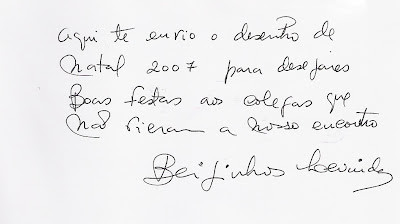 Aqui te envio o desenho de
Natal 2007 para desejares
Boas festas aos colegas que
não vieram a nosso encontro
Beijinhos